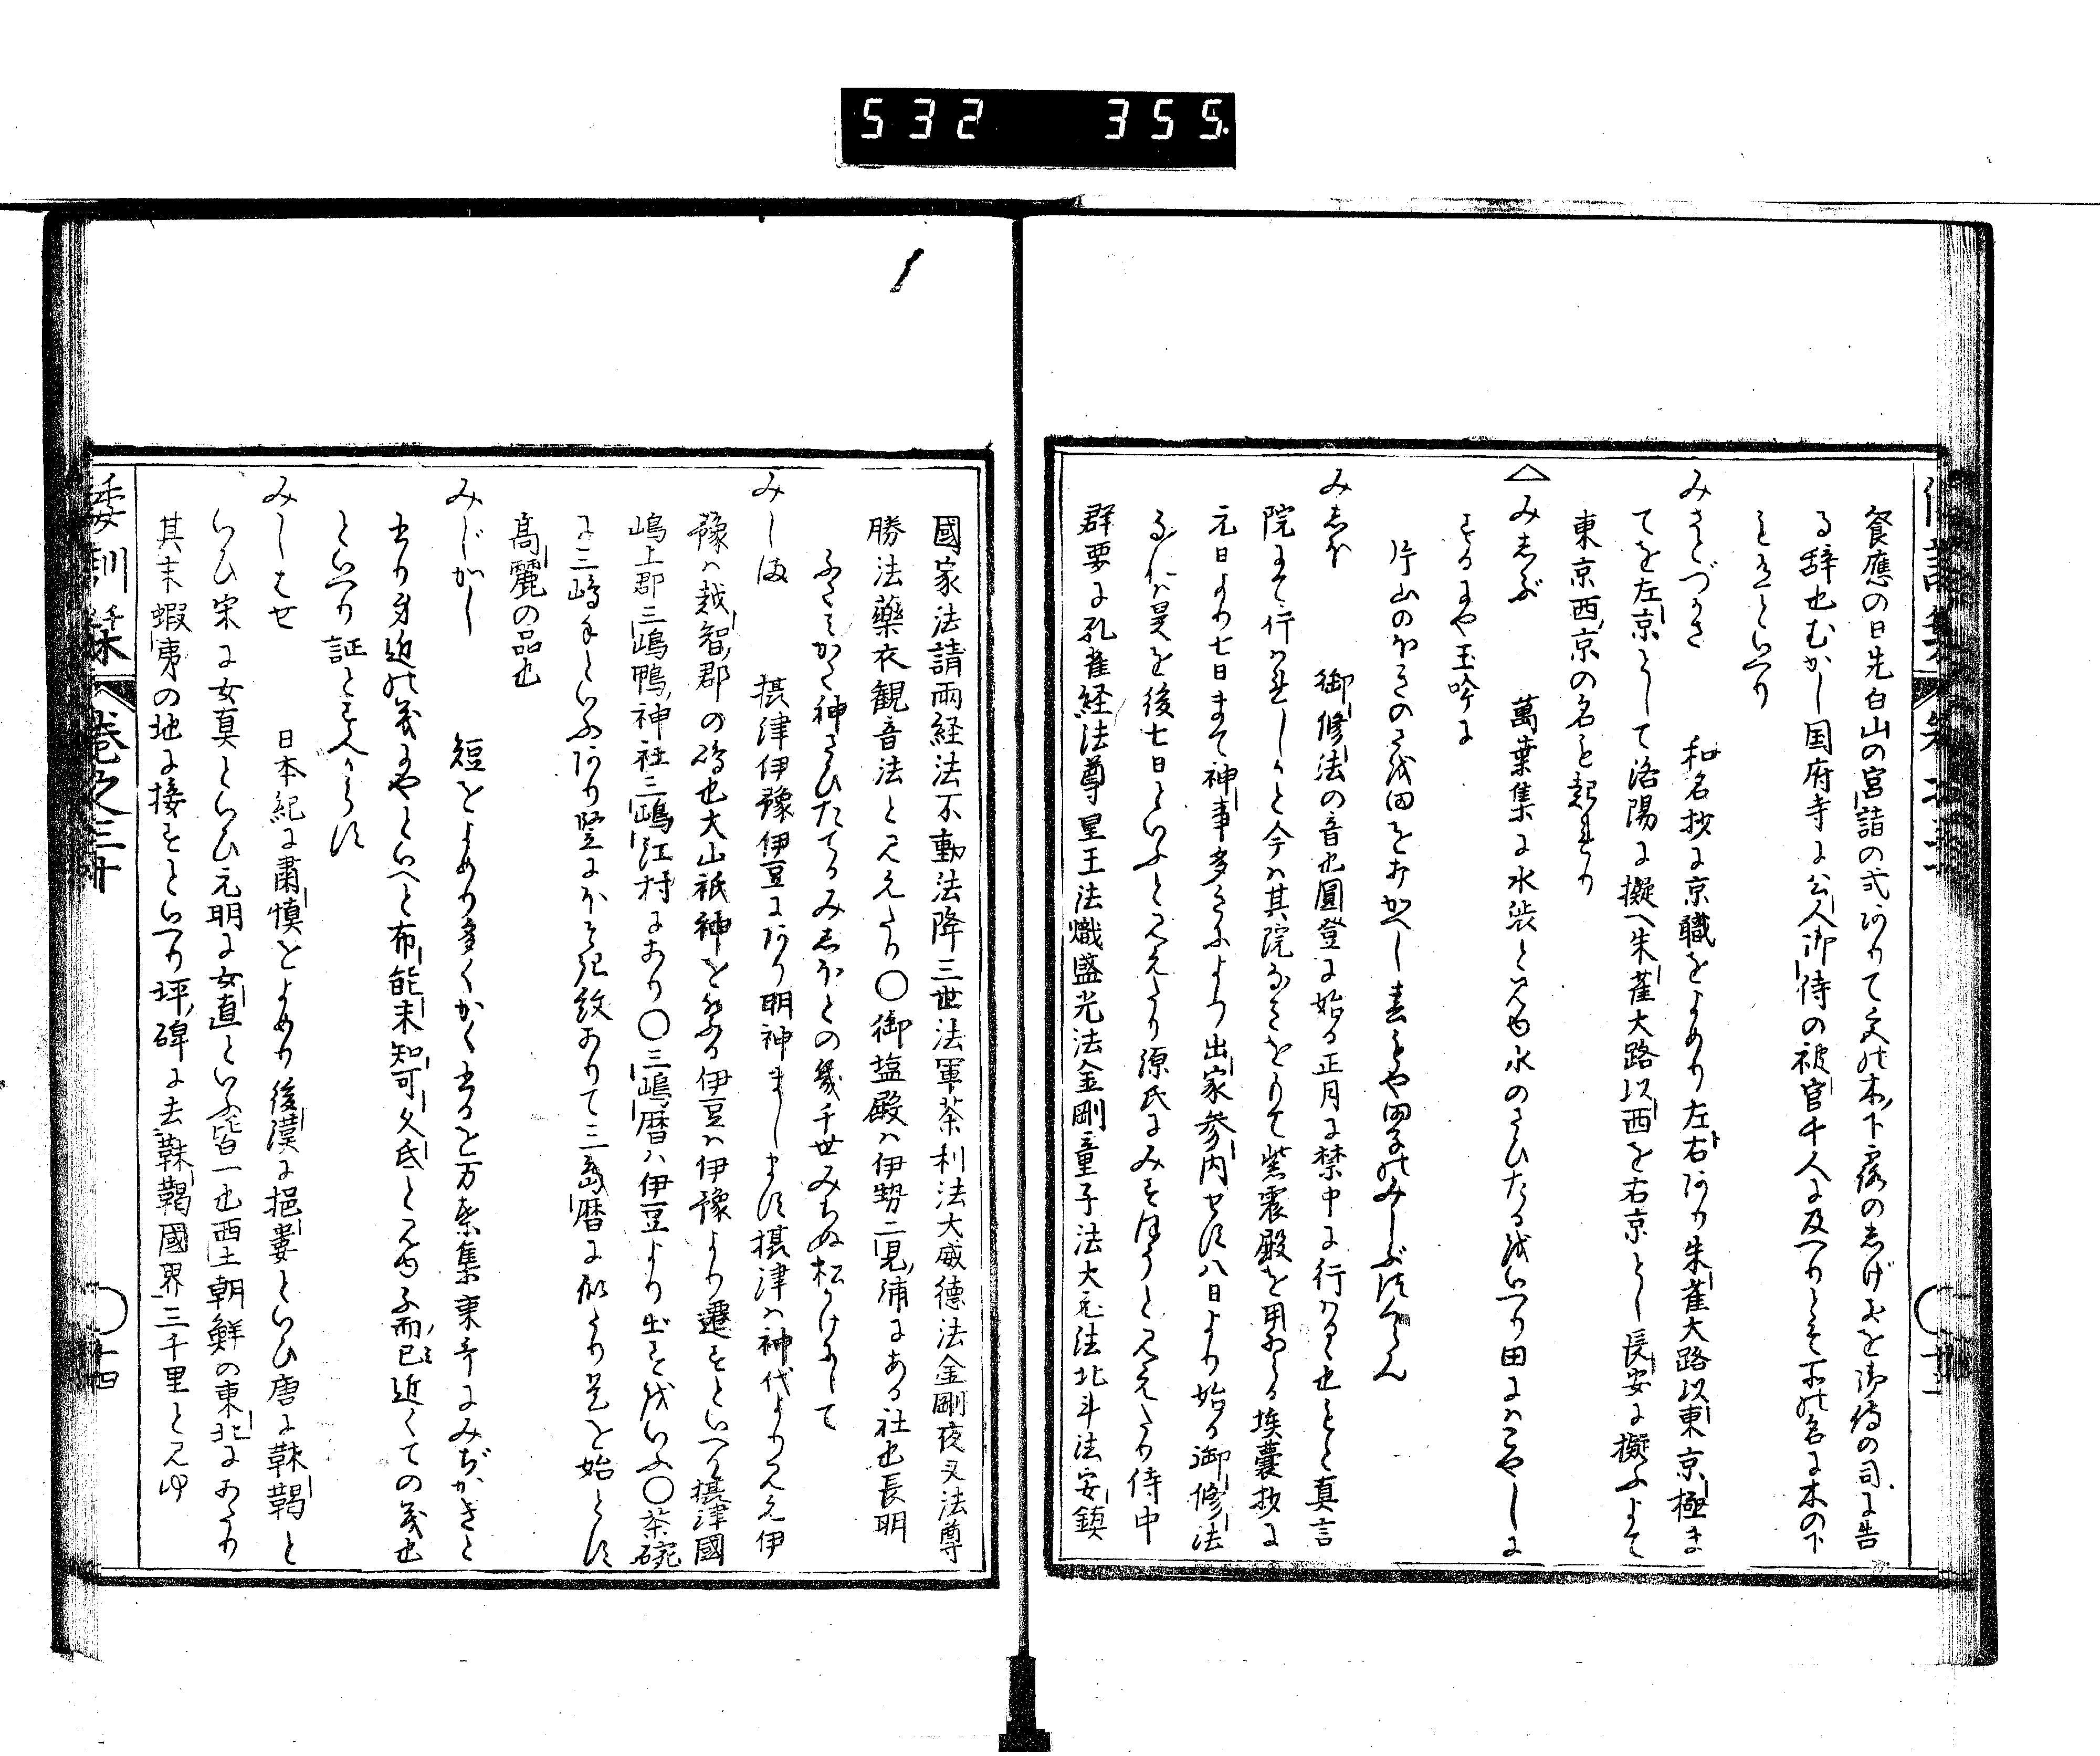 532 355
餐應の日先白山の宮詰の式ありて文の木下露のしげきを御侍の司に告
る辞也むかし国府寺に公人御侍の被官千人に及へりとそ所の名に木の下
とあるといへり
みさとづかさ 和名抄に京職をよめり左右あり朱雀大路以東京極ま
てを左京として洛陽に擬へ朱雀大路以西を右京とし長安に擬ふよて
東京西京の名も起れり
△みしぶ 萬葉集に水渋と見ゆ水のさひたるをいへり田にはこやしに
するにや玉吟に
片山の の を田をかへし もや田子のみしぶ
みしほ 御修法の音也圓登に始る正月に禁中に行はるゝ也もと真言
院にて行はれしかと今は其院なきをもて紫宸殿を用ゐらる埃嚢抄に
元日より七日まて神事多きによつ出家参内せす八日より始る御修法
なれは是を後七日といふと見えたり源氏にみすほうと見えたり侍中
群要に孔雀経法尊星王法熾盛光法金剛童子法大元法北斗法安鎮
國家法請雨経法不動法降三世法軍荼利法大威徳法金剛夜叉法尊
勝法薬衣観音法と見えたり○御塩殿は伊勢二見浦にある社也長明
ふたみかた神さひたてるみしほとの幾千世みちぬ松かけにして
みしま 摂津伊豫伊豆にあり明神まします摂津は神代より見え伊
豫は越智郡の嶋也大山祇神を祭る伊豆は伊豫より遷すといへり摂津國
嶋上郡三嶋鴨神社三嶋江村にあり○三嶋暦は伊豆より出すをいふ○茶碗
に三嶋手といふあり竪にほそ 紋ありて三島暦に似たり是を始とす
高麗の品也
みじかし 短をよめり多くかく書るを万葉集東歌にみぢかきと
書り身近の義にやといへと布能未知可久氐と見ゆふ而已近くての義也
といへり証とすへからす
みしはせ 日本紀に粛慎をよめり後漢に挹婁といひ唐に靺鞨と
いひ宋に女真といひ元明に女直といふ皆一也西土朝鮮の東北にあたり
其末蝦夷の地に接すといへり坪碑に去靺鞨國界三千里と見ゆ
倭訓栞 巻之三十 ○十四